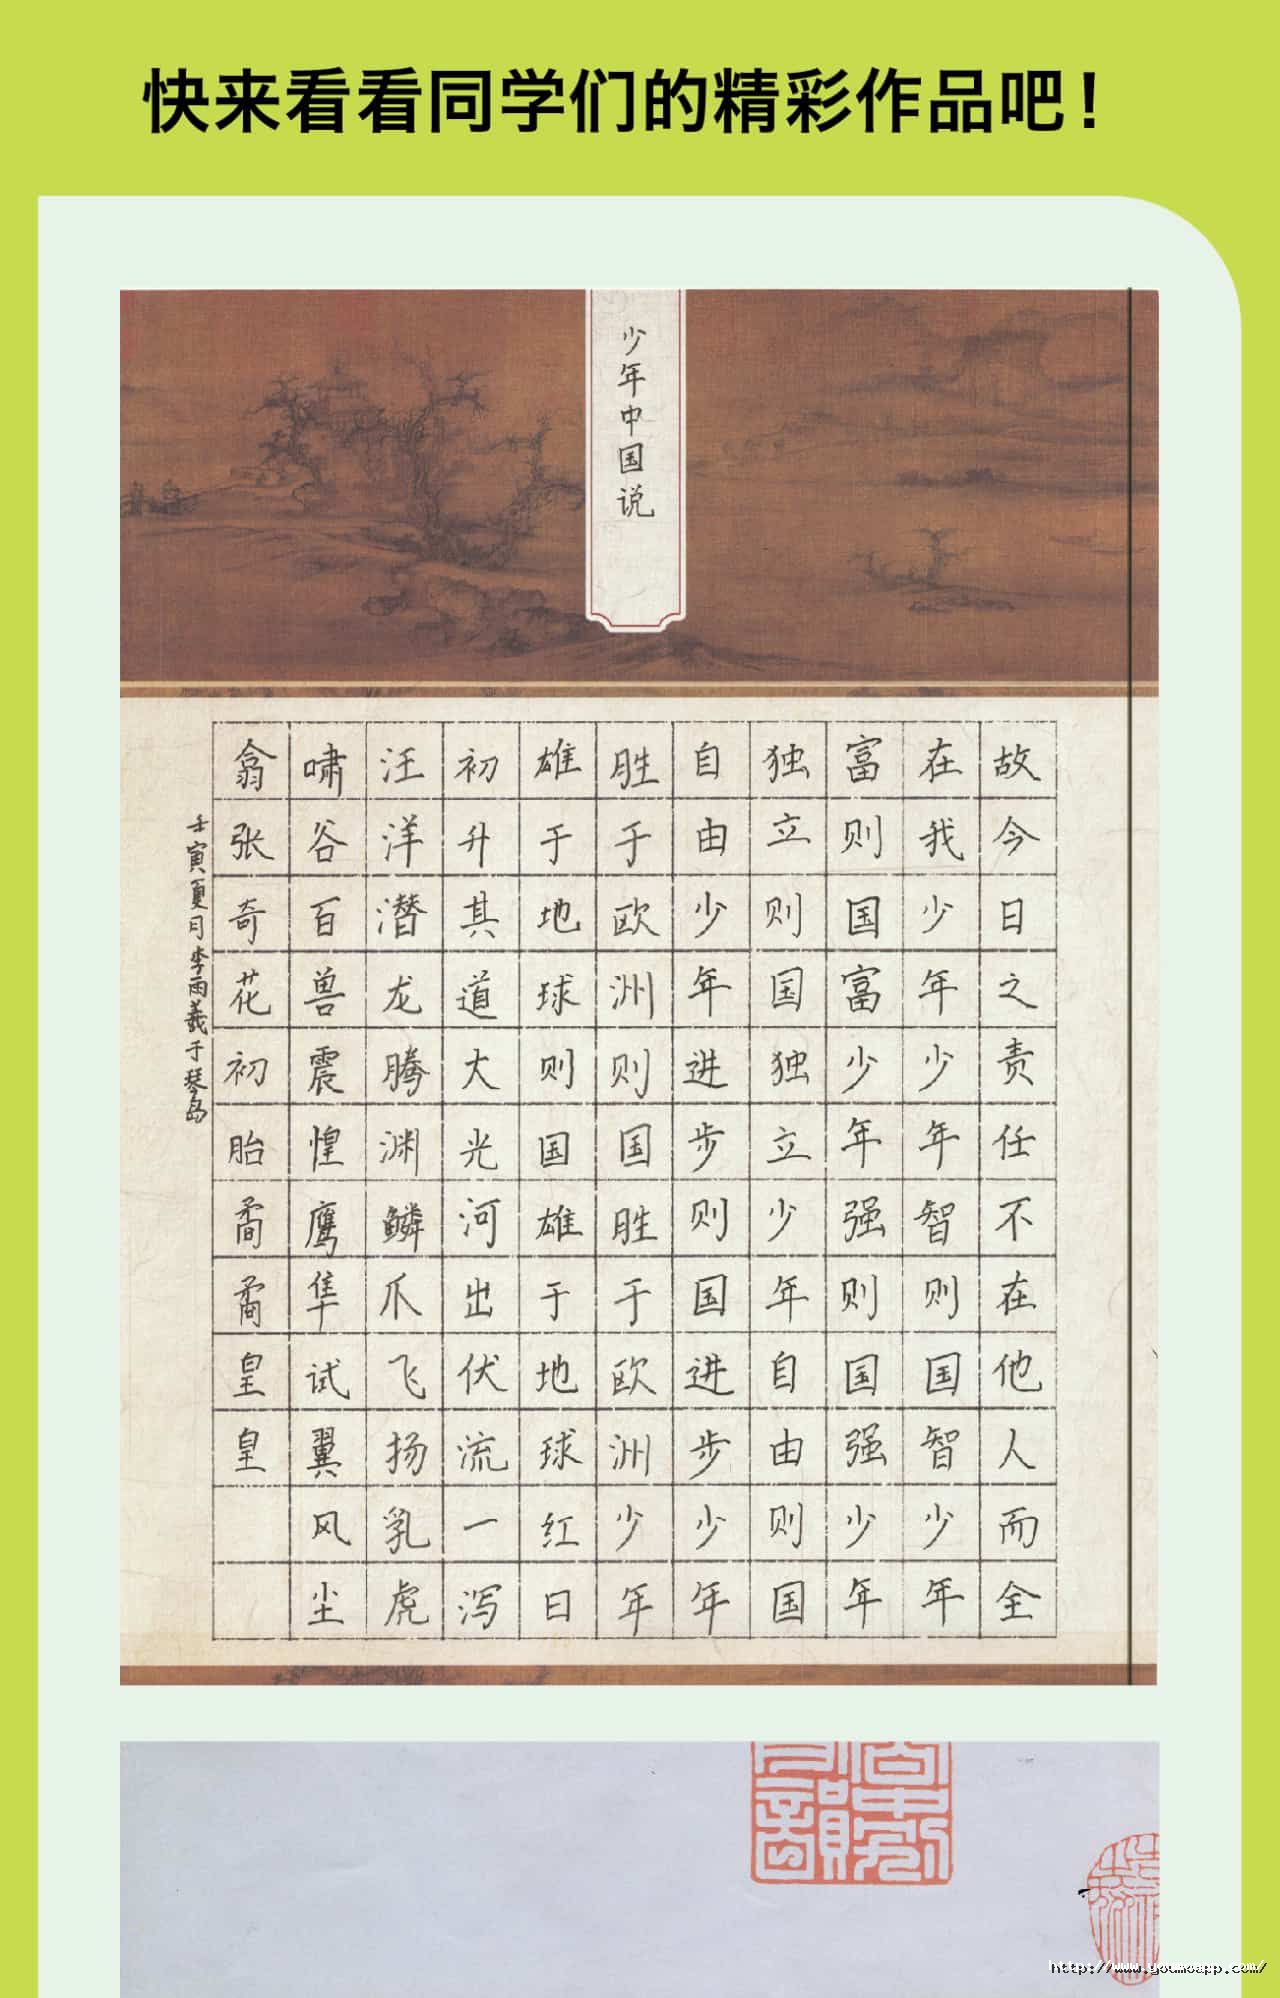 快来看看同学们的精彩作品吧！
少年中国说
故今日之责任不在他人而全
在我少年少年智则国智少年
富则国富少年强则国强少年
独立则国独立少年自由则国
自由少年进步则国进步少年
胜于欧洲则国胜于欧洲少年
雄于地球则国雄于地球红日
初升其道大光河出伏流一泻
汪洋潜龙腾渊鳞爪飞扬乳虎
啸谷百兽震惶鹰隼试翼风尘
翕张奇花初胎矞矞皇皇
壬寅夏月李雨羲于琴岛
http://www.youmoapp.com/